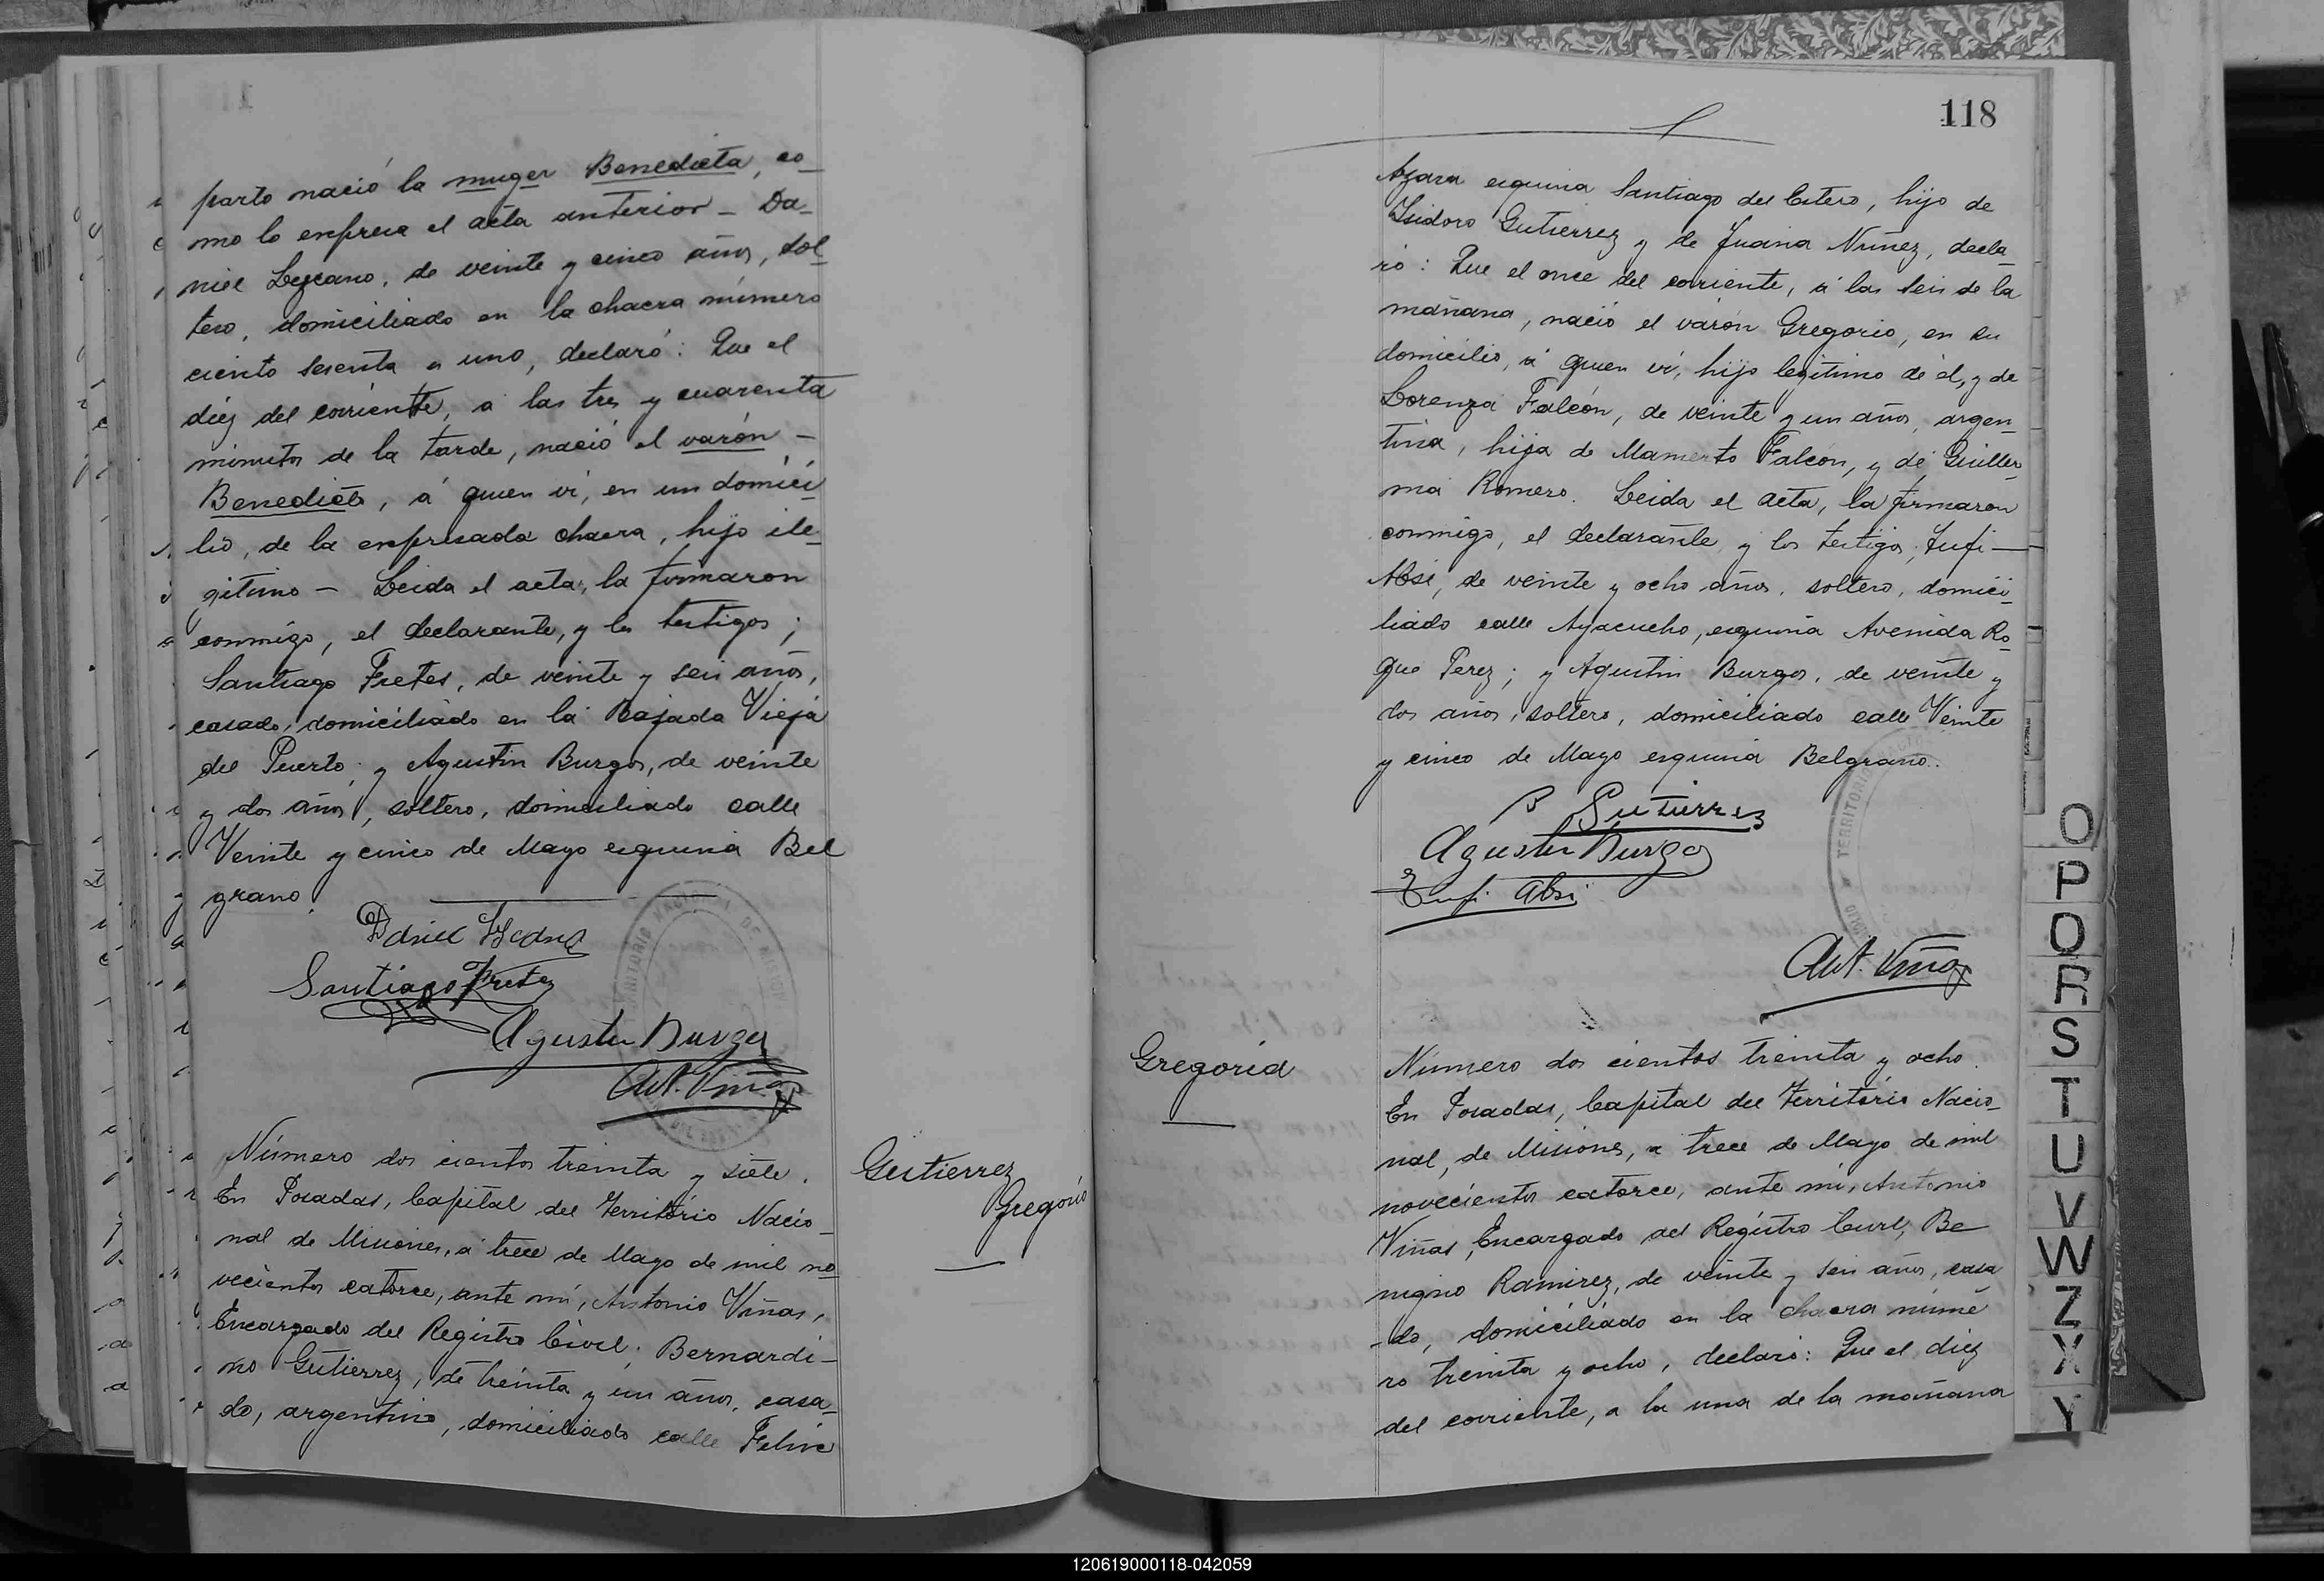 parto nació la muger Benedicta, co_
mo lo expresa el acta anterior _ Da_
niel Lezcano, de veinte y cinco años, sol_
tero, domiciliado en la chacra número
ciento sesenta y uno, declaró: Que el
diez del corriente, á las tres y cuarenta
minutos de la tarde, nació el varón _
Benedicto, á quien ví, en un domici_
lio, de la expresada chacra, hijo ile_
gitimo _ Leida el acta, la firmaron
conmigo, el declarante, y los testigos;
Santiago Fretes, de veinte y seis años,
casado, domiciliado en la Bajada Vieja
del Puerto; y Agustin Burgos, de veinte
y dos años, soltero, domiciliado calle
Veinte y cinco de Mayo esquina Bel
grano.
Daniel Lezcano
Santiago Fretes
Agustin Burgos
Ant. Viñas
Número dos cientos treinta y siete.
En Posadas, Capital del Territorio Nacio_
nal de Misiones, á trece de Mayo de mil no_
vecientos catorce, ante mí, Antonio Viñas,
Encargado del Registro Civil; Bernardi_
no Gutierrez, de treinta y un años, casa_
do, argentino, domiciliado calle Felix
Gutierrez
Gregorio
118
Azara esquina Santiago del Estero, hijo de
Isidoro Gutierrez y de Juana Nuñez, decla_
ró: Que el once del corriente, á las seis de la
mañana, nació el varón Gregorio, en su
domicilio, á quien ví, hijo legitimo de él, y de
Lorenza Falcón, de veinte y un años, argen_
tina, hija de Mamerto Falcón, y de Guiller_
ma Romero. Leida el acta, la firmaron
conmigo, el declarante y los testigos; Tufi _
Absi, de veinte y ocho años, soltero, domici_
liado calle Ayacucho, esquina Avenida Ro_
que Perez; y Agustin Burgos, de veinte y
dos años, soltero, domiciliado calle Veinte
y cinco de Mayo esquina Belgrano.
B Gutierrez
Agustin Burgos
Tufi Absi
Ant. Viñas
Gregoria
Número dos cientos treinta y ocho.
En Posadas, Capital del Territorio Nacio_
nal, de Misiones, á trece de Mayo de mil
novecientos catorce, ante mí, Antonio
Viñas, Encargado del Registro Civil; Be
nigno Ramirez, de veinte y seis años, casa
_do, domiciliado en la chacra núme
ro treinta y ocho, declaró: Que el diez
del corriente, a la una de la mañana
O
P
Q
R
S
T
U
V
W
Z
X
Y
120619000118-042059